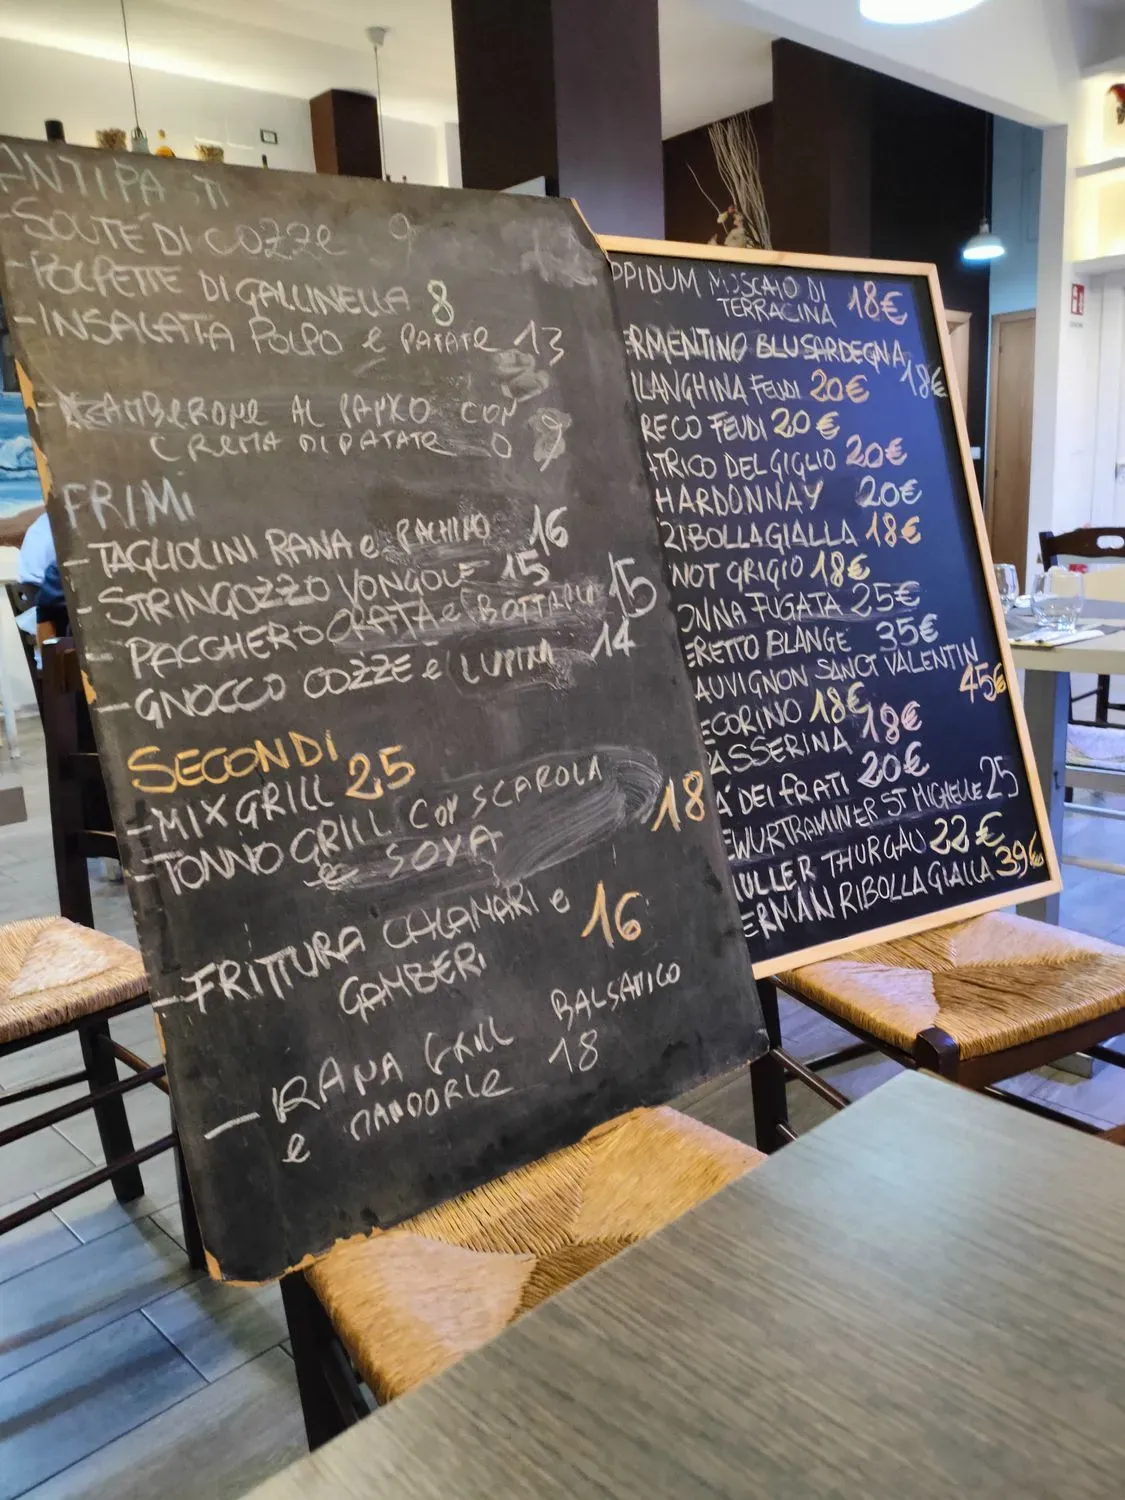 ANTIPASTI
-SOUTÉ DI COZZE 9
-POLPETTE DI GALLINELLA 8
-INSALATA POLPO e PATATE 13
GAMBERONE AL PANKO CON
CREMA DI PATATE
PRIMI
-TAGLIOLINI RANA e PACHINO 16
-STRINGOZZO VONGOLE 15
-PACCHERO ORATA e BOTTARGA 15
-GNOCCO COZZE e LUPINI 14
SECONDI
-MIX GRILL 25
-TONNO GRILL CON SCAROLA
e SOYA 18
-FRITTURA CALAMARI e
GAMBERI 16
-RANA GRILL BALSAMICO
e MANDORLE 18
PPIDUM MOSCATO DI
TERRACINA 18€
ERMENTINO BLU SARDEGNA
18€
LANGHINA FEUDI 20€
RECO FEUDI 20€
ATRICO DEL GIGLIO 20€
HARDONNAY 20€
RIBOLLA GIALLA 18€
NOT GRIGIO 18€
ONNA FUGATA 25€
ERETTO BLANGE 35€
AUVIGNON SANCT VALENTIN
45€
ECORINO 18€
PASSERINA 18€
A' DEI FRATI 20€
EWURTRAMINER ST MICHELLE 25
ULLER THURGAU 22€
ERMAN RIBOLLA GIALLA 39€